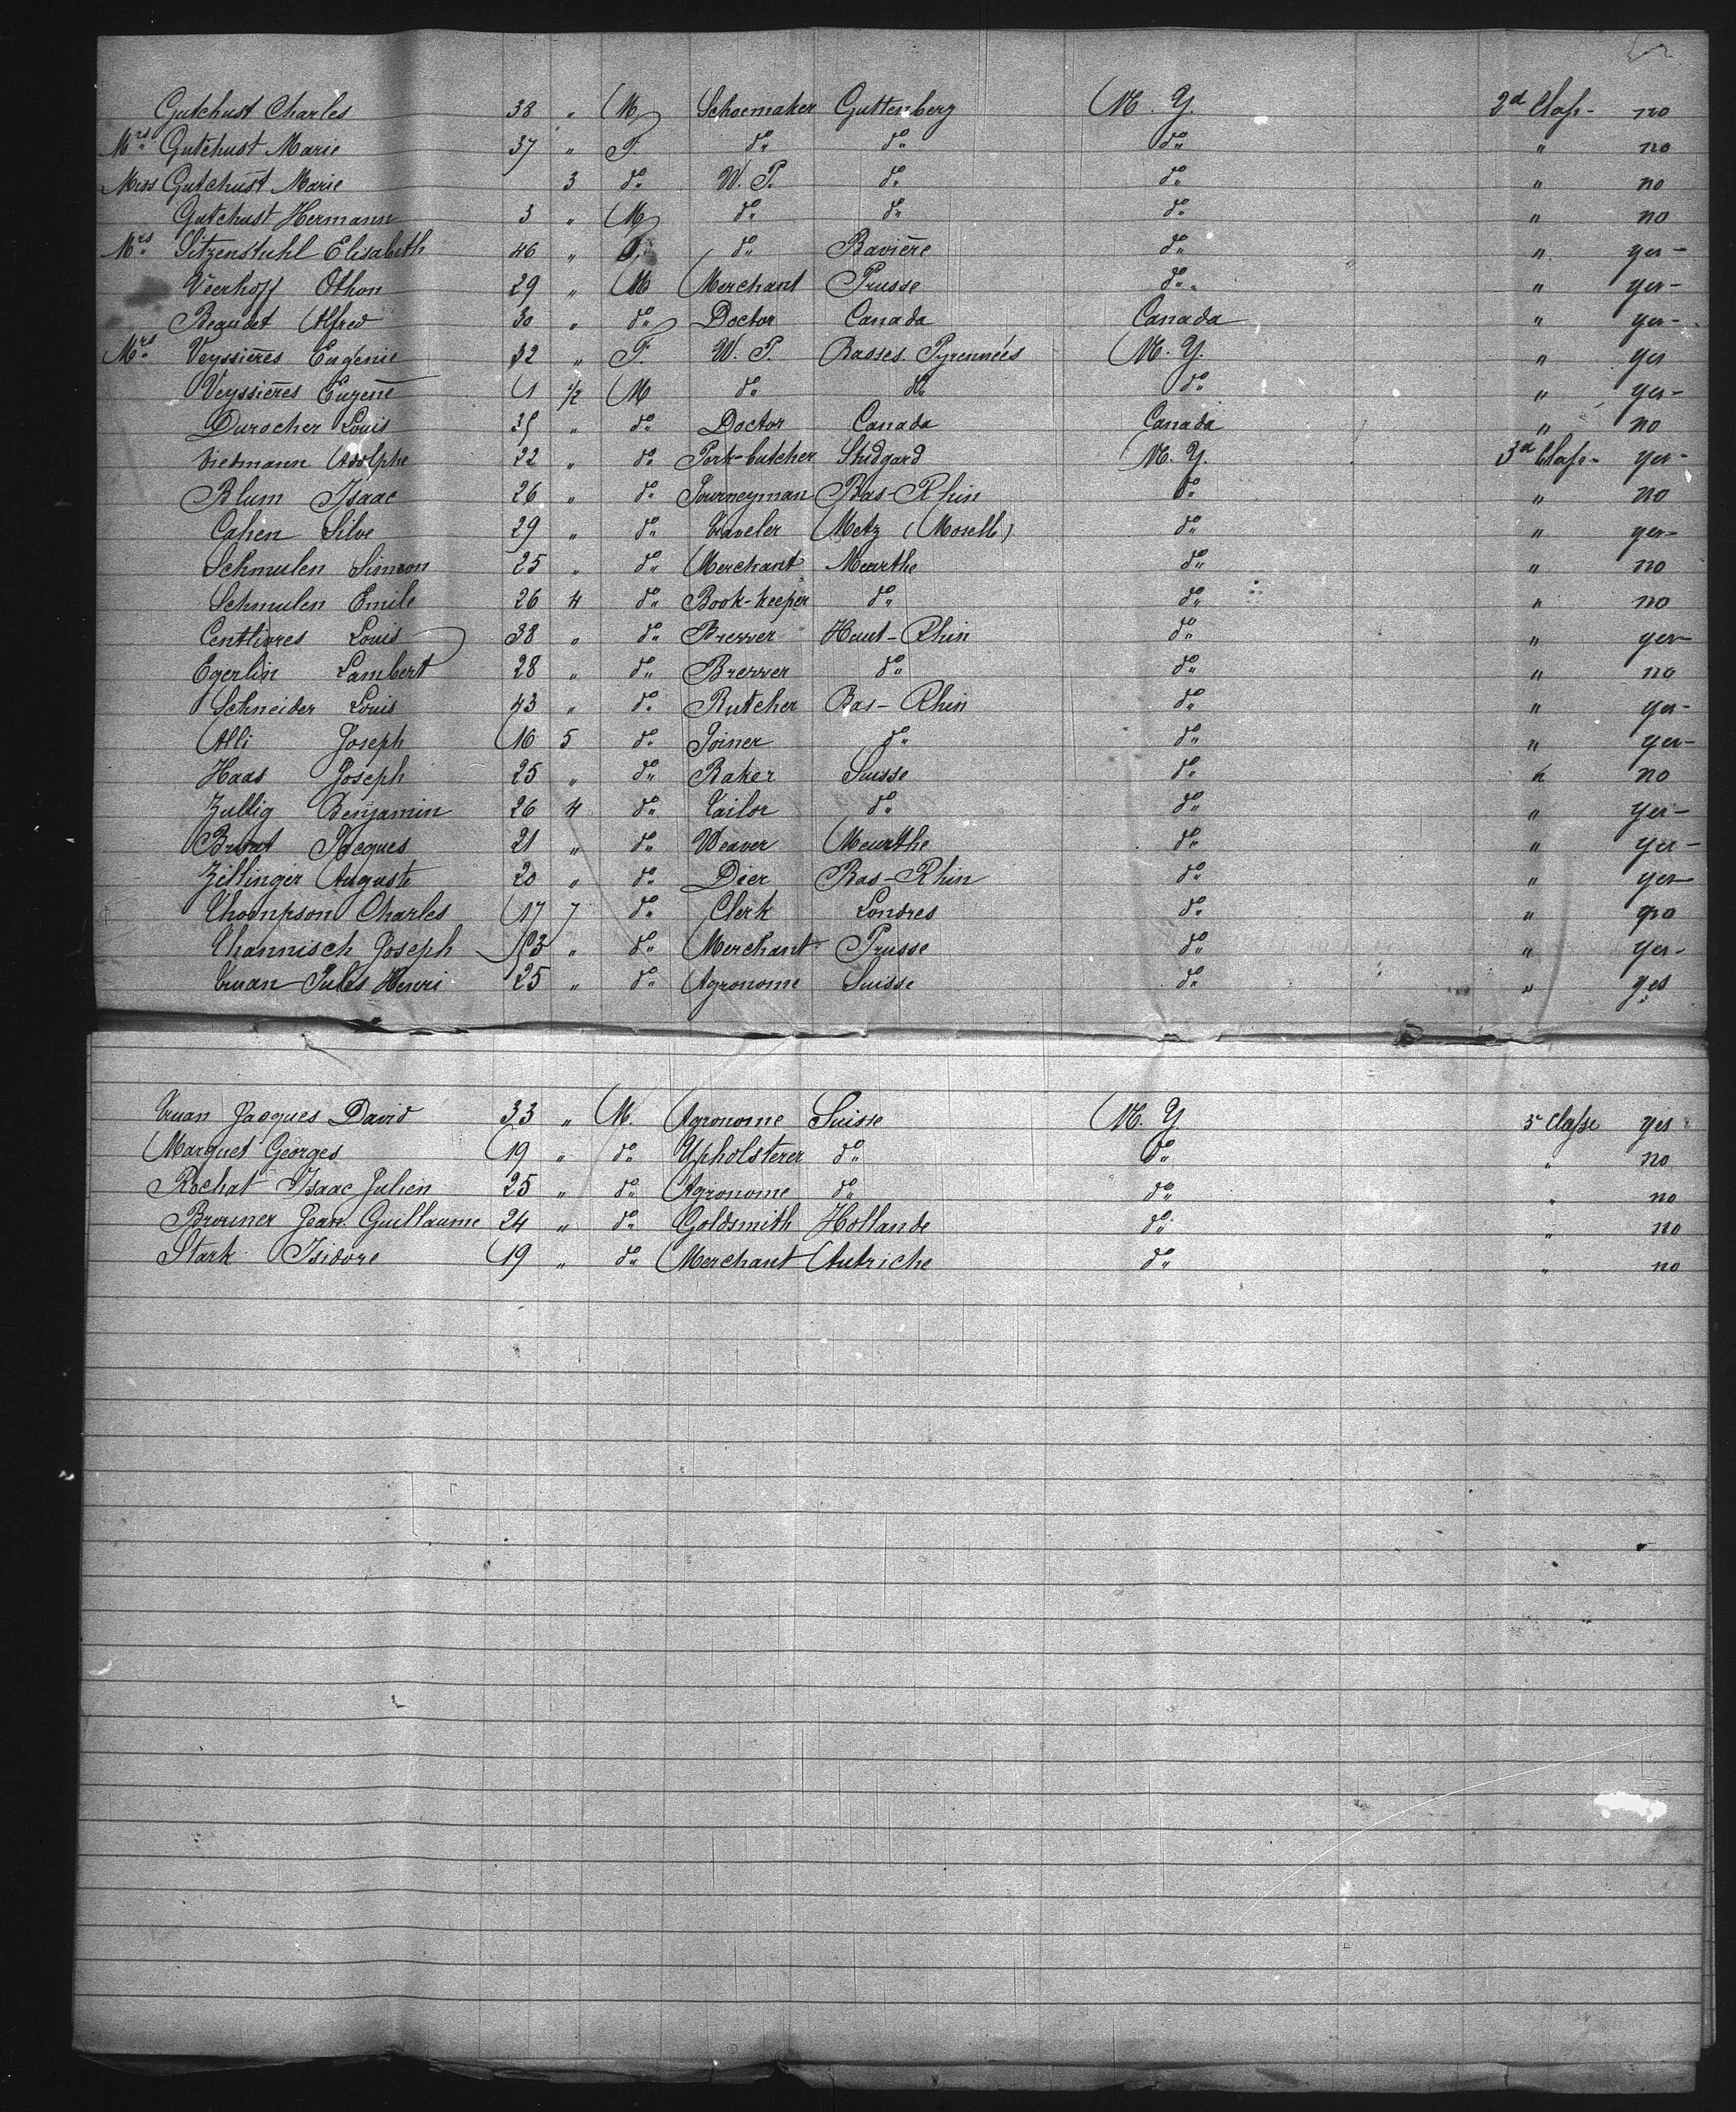 Gutchust Charles 38 " M Schoemaker Guttenberg N. Y. 2d Class - no
Mrs Gutchust Marie 37 " F. do do do " no
Miss Gutchust Marie 3 do W. P. do do " no
Gutchust Hermann 3 " M do do do " no
Mrs Sitzenstuhl Elisabeth 46 " F. do Bavière do " yes -
Vierhoff Othon 29 " M Merchant Prusse do " yes -
Beaudet Alfred 30 " do Doctor Canada Canada " yes -
Mrs Veyssières Eugénie 32 " F. W. P. Basses Pyrennées N. Y. " yes
Veyssières Eugene 1 1/2 M do do do " yes -
Durocher Louis 35 " do Doctor Canada Canada " no
Viedmann Adolphe 22 " do Pork-butcher Studgard N. Y. 3d Class - yes -
Blum Isaac 26 " do Journeyman Bas-Rhin do " no
Cahen Silve 29 " do Traveler Metz (Moselle) do " yes -
Schmulen Simeon 25 " do Merchant Meurthe do " no
Schmulen Emile 26 4 do Book-keeper do do " no
Centlivres Louis 38 " do Brewer Haut-Rhin do " yes -
Egerlin Lambert 28 " do Brewer do do " no
Schneider Louis 43 " do Butcher Bas-Rhin do " yes -
Alli Joseph 16 5 do Joiner do do " yes -
Haas Joseph 25 " do Baker Suisse do " no
Zullig Benjamin 26 4 do Tailor do do " yes -
Jacques 21 " do Weaver Meurthe do " yes -
Zillinger Auguste 20 " do Dier Bas-Rhin do " yes -
Thompson Charles 17 7 do Clerk Londres do " no
Thannisch Joseph " do Merchant Prusse do " yes -
Truan Jules Henri 25 " do Agronome Suisse do " yes
Truan Jacques David 33 " M. Agronome Suisse N. Y. 3e Classe yes
Marguet Georges 19 " do Upholsterer do do " no
Rochat Isaac Julien 25 " do Agronome do do " no
Brouner Jean Guillaume 24 " do Goldsmith Hollande do " no
Stark Isidore 19 " do Merchant Autriche do " no